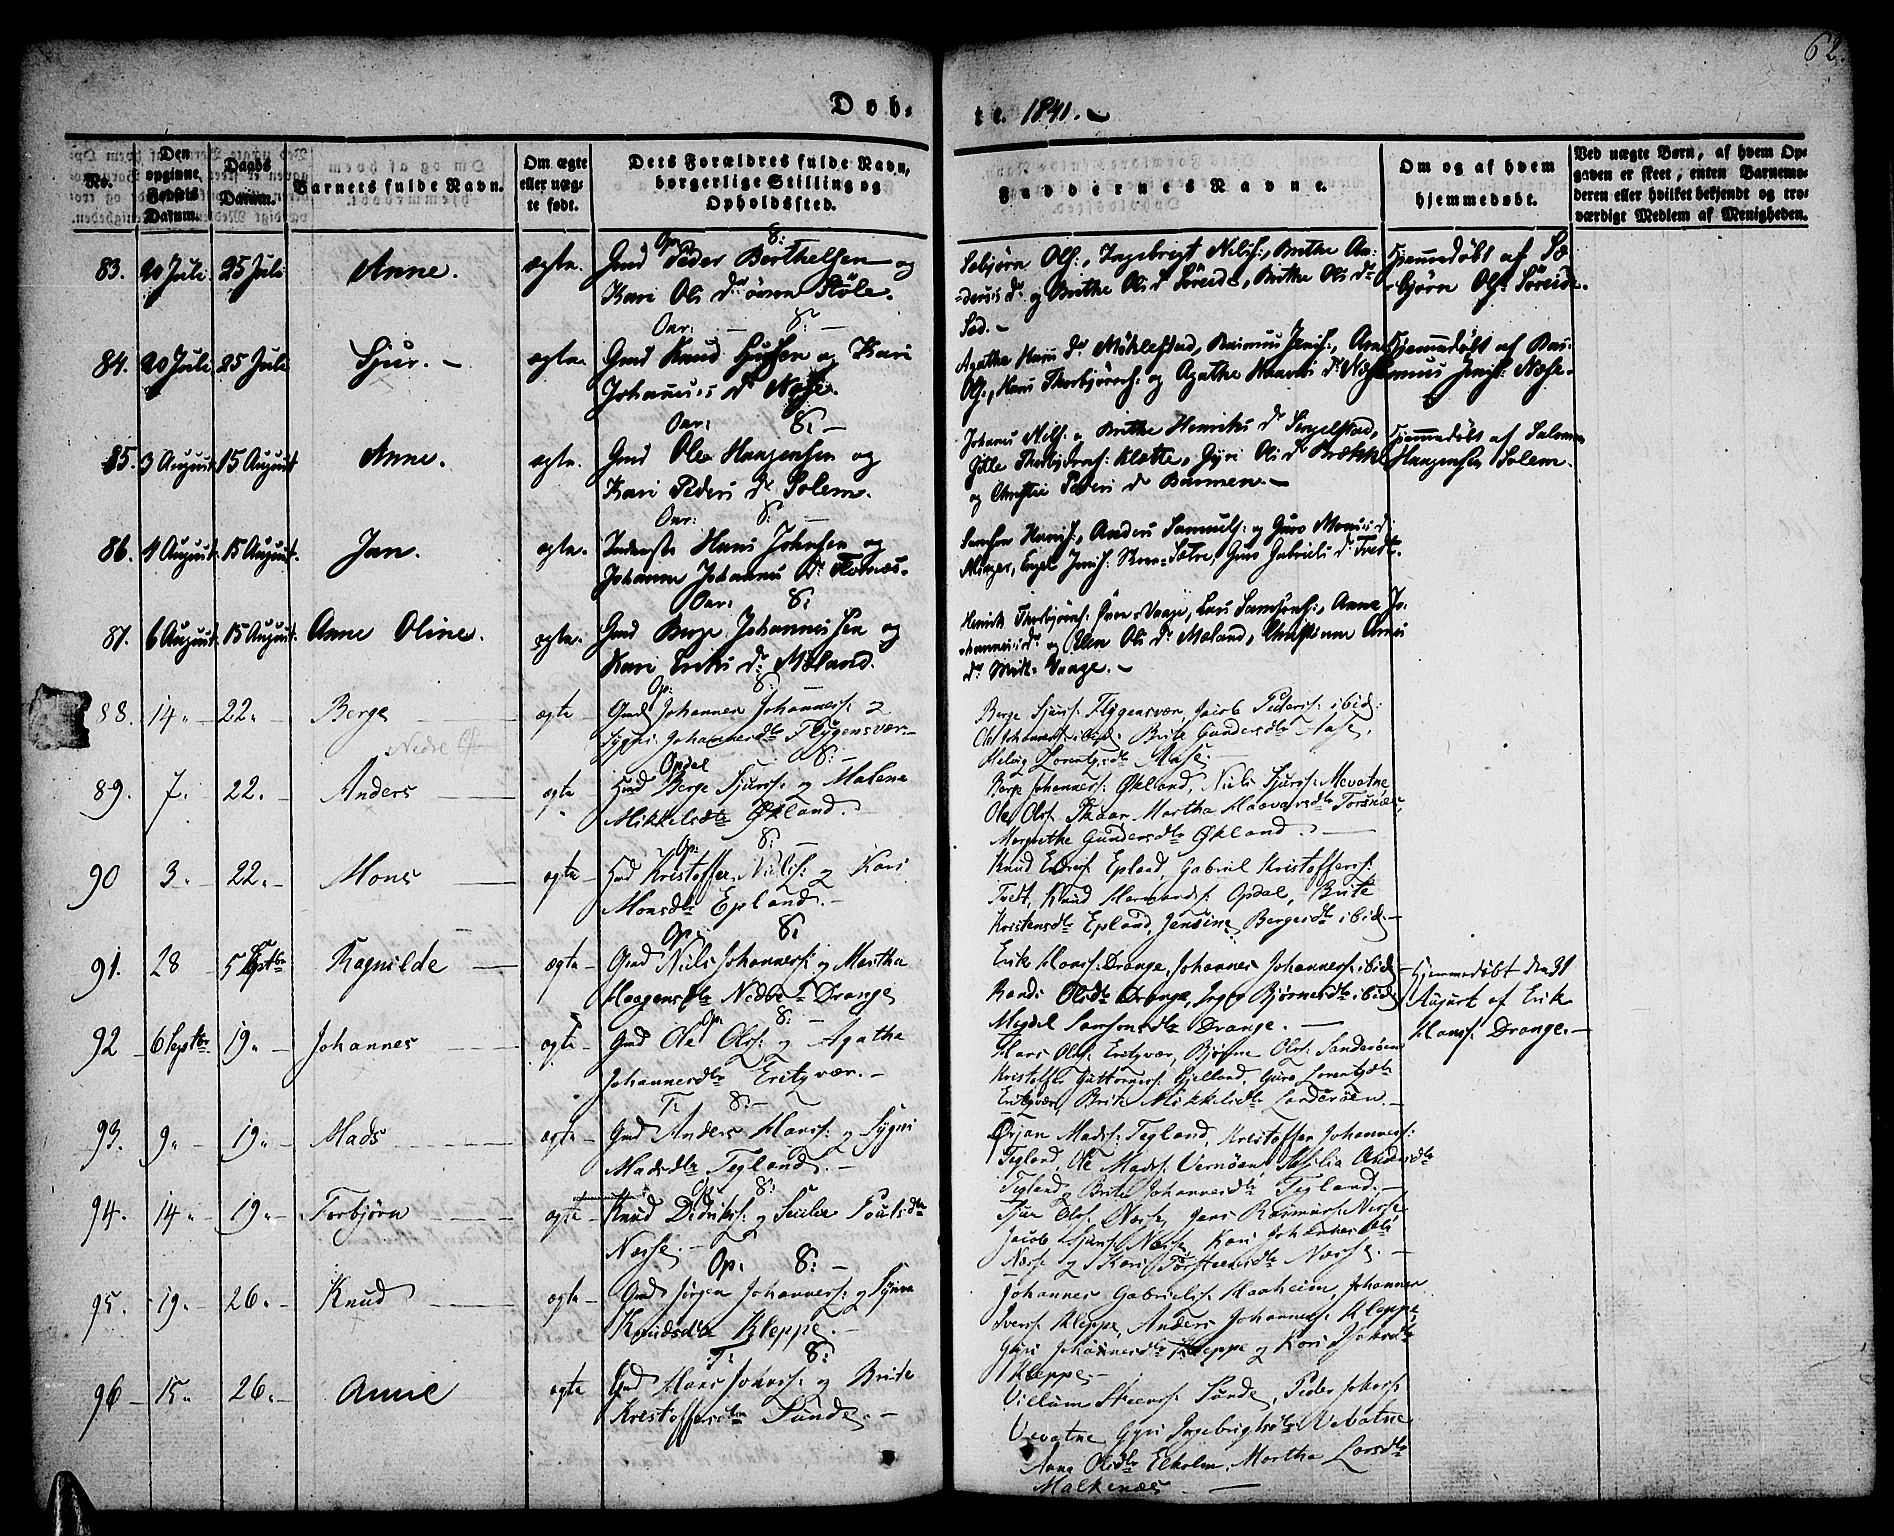 62.
Døb-
te. 1841.
No.
Den opgivne Fødsels Datum.
Daabs Datum.
Barnets fulde Navn.
Om ægte eller uægte født.
Dets Forældres fulde Navn, borgerlige Stilling og Opholdssted.
Faddernes Navne.
Om og af hvem hjemmedøbt.
Ved uægte Børn, af hvem Opgaven er skeet, enten Barnemoderen eller hvilket bekjendt og troværdigt Medlem af Menigheden.
83. 20 Juli 25 Juli Anne. ægte.
Op: 8:
Gmd Peder Berthelsen og
Kari Ols Dr øvre Støle.
Sebjørn Ols:, Ingebrigt Nils:, Brithe An-
-ders's dr og Brithe Ols dr Søreide, Brithe Ols dr
Sæd. -
Hjemmedøbt af Se-
-bjørn Ols: Søreide.
84. 20 Juli. 25 Juli Sjur. - ægte.
Onr: - 8: -
Gmd Knud Sjursen og Kari
Johannes's dr Næse.
Agathe Hans dr Miklestad, Rasmus Jens:, Arne
Ols:, Hans Thorbjørns: og Agathe Haavars dr Næse
Hjemmedøbt af Ras-
mus Jens: Næse.
85. 3 August. 15 August Anne. ægte.
Onr: 8: -
Gmd Ole Haagensen og
Kari Peders dr Solem.
Johannes Nils: og Brithe Henriks dr Tengelstad,
Gitle Thorbjørns: Klætte, Gyri Ols dr Brække
og Christie Peders dr Barmen. -
Hjemmedøbt af Salomon
Haagensen Solem.
86. 4 August. 15 August. Jan. ægte.
Onr: 8: -
Inderste Hans Johnsen og
Johanne Johannes dr Flornæs.
Samson Hans:, Anders Samuels: og Guro Mons's dr
Guro Gabriels dr Tvedt.
87. 6 August. 15 August. Anne Oline. ægte.
Onr: 8:
Gmd Berge Johannessen og
Kari Eriks dr Mæland.
Henrik Thorbjørns: Øvre-Vaage, Lars Samsons:, Anne Jo-
-hannes's dr og Elen Ols dr Mæland, Christine Arnes
dr Midt-Vaage. -
88. 14. - 22. - Berge - ægte
Op: 8:
Gmd Johannes Johanness: &
Sygni Johannesdtr Flygensvær. -
Berge Sjurs: Flygensvær, Jacob Peders: ibid:
Ole Johannes: ibid: Brite Gundersdtr Aase,
Helvig Lorentzdtr Aase. -
Nedre
89. 7. 22. - Anders - ægte
Opdal 8: -
Gmd Berge Sjurss: og Malene
Mikkelsdtr Økland.
Berge Johanness: Økland, Niels Sjurss: Mevatne
Ole Ols: Skaar, Martha Haavarsdtr Torsnæs,
Margrethe Gundersdtr Økland. -
90 3. - 22. - Mons - ægte -
Op: 8: -
Gmd Kristoffer Nils: og Kari
Monsdtr Epland. -
Knud Enders: Epland, Gabriel Kristofferss:
Tvedt, Knud Hermands: Opdal, Brite
Kristensdtr Epland, Jensine Bergesdtr ibid: -
91. 28 - 5 Septbr Ragnilde - ægte -
Op: 8:
Gmd Nils Johannes: og Martha
Haagensdtr Nedre Drange
Erik Hanss: Drange, Johannes Johannes: ibid
Randi Olsdtr Drange, Inger Bjørnesdtr ibid
Magdel Samsonsdtr Drange. -
Hjemmedøbt den 31
August af Erik
Hans: Drange. -
92 - 6 Septbr 19. - Johannes - ægte -
Op: 8: -
Gmd Ole Ols: og Agathe
Johannesdtr Eritzvær. -
Hans Ols: Eritzvær, Bjørne Ols: Sanderøen
Kristoffer Guttorms: Gjelland, Guro Lorentzdtr
Eritzvær, Brite Mikkelsdtr Sanderøen. -
93. 9. - 19. - Mads - ægte -
T: 8: -
Gmd Anders Hans: og Sygni
Madsdtr Tegland. -
Ørjan Mads: Tegland, Kristoffer Johannes:
Tegland, Ole Mads: Vernøen, Sesselia Andersdtr
Tegland og Brite Johannesdtr Tegland. -
94. 14. - 19. - Torbjørn - ægte -
Op: 8:
Knud Didriks: og Poulsdtr
Næsse. -
Sjur Ols: Næsse, Jens Rasmus: Næsse
Jacob Sjurs: Næsse, Kari Johannesdtr
Næsse og Kari Torstensdtr Næsse. -
95. - 19. - 26. - Knud - ægte -
Op: 8: -
Gmd Jørgen Johanness: og Synva
Knudsdtr Kleppe. -
Johannes Gabriels: Haaheim, Johannes
Ivers: Kleppe, Anders Johannes: Kleppe,
Gyri Johannesdtr Kleppe og Kari Johnsdtr
Kleppe. -
96 - 15. - 26. - Anne ægte
T: 8:
Gmd Hans Johns: og Brite
Kristoffersdtr Sunde. -
Villum Steens: Sunde, Peder Johns:
Vevatne, Gyri Ingebrigtsdtr Vevatne
Anna Olsdtr Elholm, Martha Larsdtr
Malkenæs -